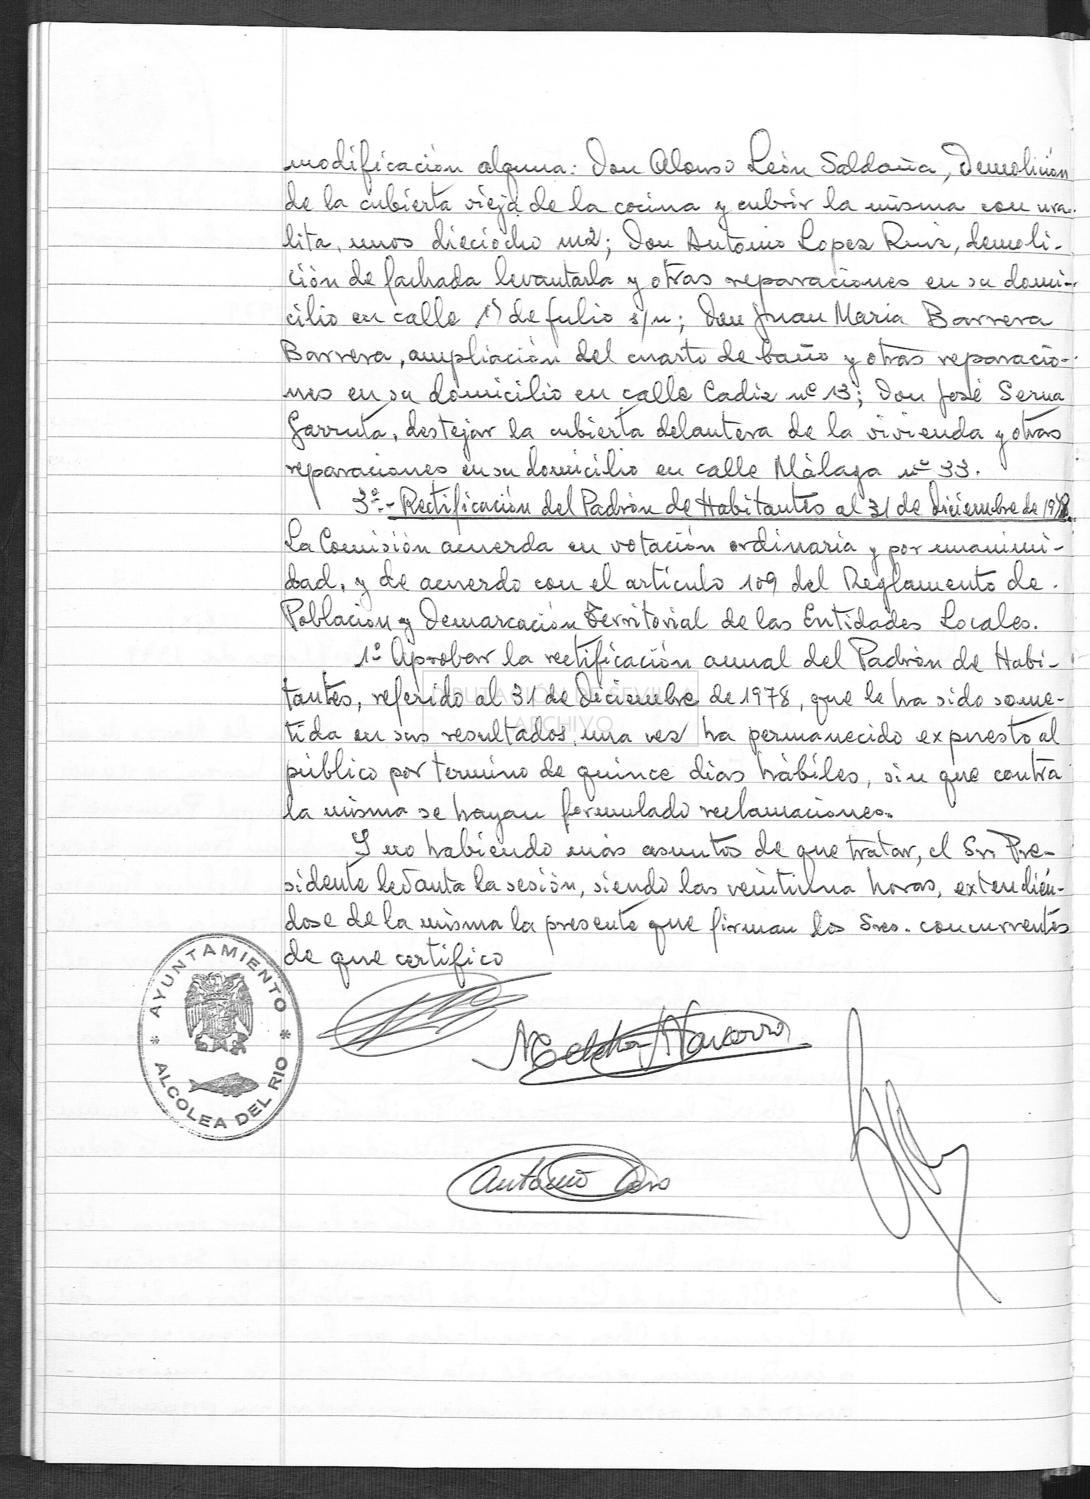 modificación alguna: Don Alonso León Saldaña, Demolición
de la cubierta vieja de la cocina y cubrir la misma con ura-
lita, unos dieciocho m2; Don Antonio Lopez Ruiz, demoli-
ción de fachada levantarla y otras reparaciones en su domi-
cilio en calle de Julio s/n; Don Juan Maria Barrera
Barrera, ampliación del cuarto de baño y otras reparacio-
nes en su domicilio en calle Cadiz nº 13; Don José Serna
Garruta, destejar la cubierta delantera de la vivienda y otras
reparaciones en su domicilio en calle Málaga nº 33.
3º.- Rectificación del Padrón de Habitantes al 31 de Diciembre de 1978.
La Comisión acuerda en votación ordinaria y por unanimi-
dad, y de acuerdo con el artículo 109 del Reglamento de
Población y Demarcación Territorial de las Entidades Locales.
1º Aprobar la rectificación anual del Padrón de Habi-
tantes, referido al 31 de Diciembre de 1978, que le ha sido some-
tida en sus resultados, una vez ha permanecido expuesto al
público por termino de quince dias hábiles, sin que contra
la misma se hayan formulado reclamaciones.
Y no habiendo más asuntos de que tratar, el Sr. Pre-
sidente levanta la sesión, siendo las veintiuna horas, extendién-
dose de la misma la presente que firman los Sres. concurrentes
de que certifico
DIPUTACIÓN DE SEVILLA
ARCHIVO
AYUNTAMIENTO
* ALCOLEA DEL RIO *
Navarro
Antonio Caro